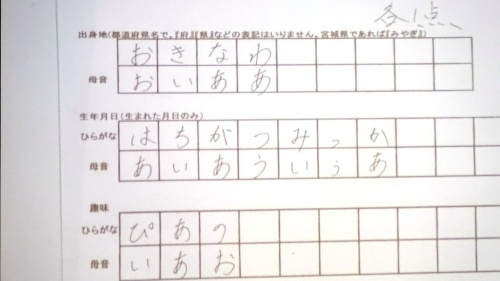 各1点
出身地(都道府県名で。『府』『県』などの表記はいりません。宮城県であれば『みやぎ』)
おきなわ
母音 おいああ
生年月日(生まれた月日のみ)
ひらがな はちがつみっか
母音 あいあういぅあ
趣味
ひらがな ぴあの
母音 いあお